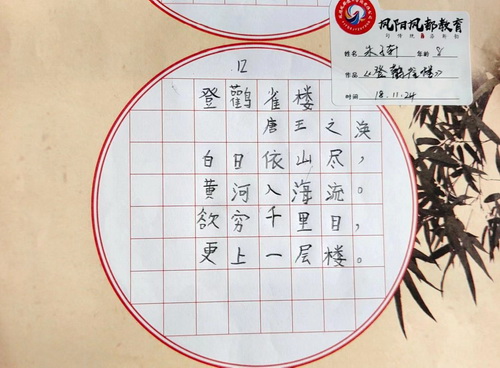 凤阳凤都教育
姓名 年龄 8
作品 《登鹳雀楼》
时间 18.11.24
12
登鹳雀楼
唐王之涣
白日依山尽，
黄河入海流。
欲穷千里目，
更上一层楼。